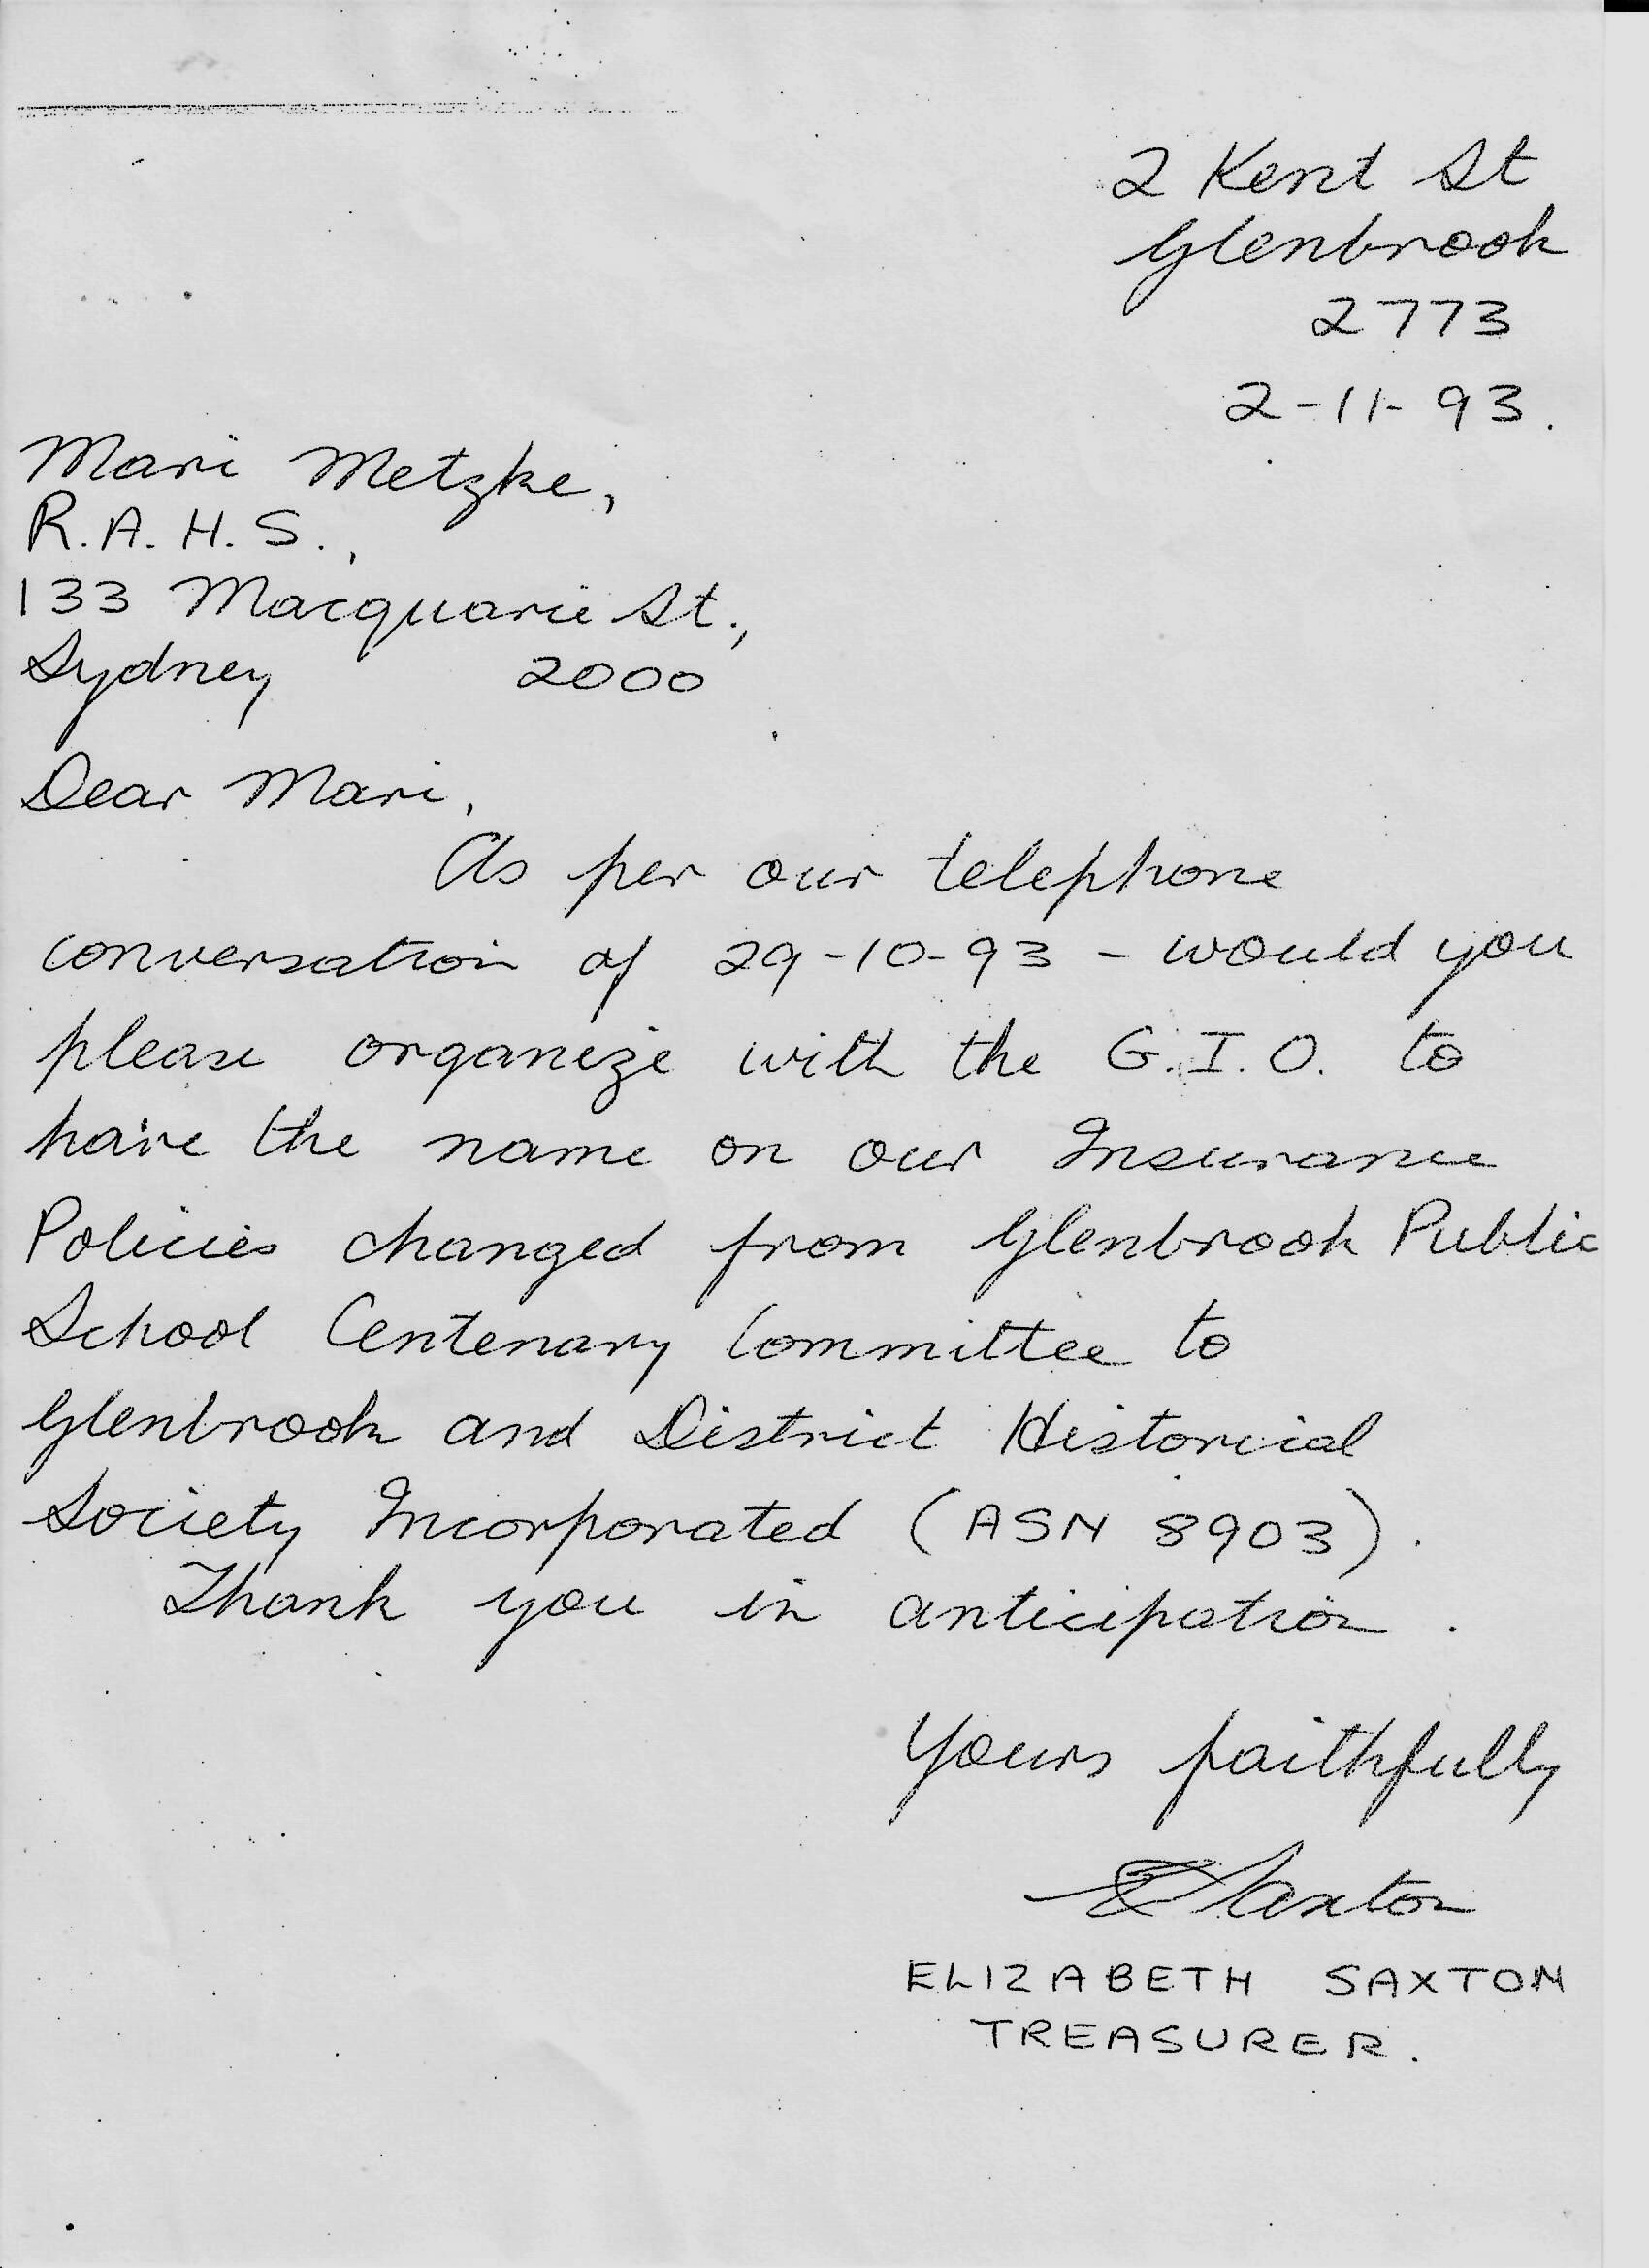 2 Kent St
Glenbrook
2773
2-11-93.
Mari Metzke,
R.A.H.S.,
133 Macquarie St.,
Sydney 2000
Dear Mari,
As per our telephone
conversation of 29-10-93 - would you
please organize with the G.I.O. to
have the name on our Insurance
Policies changed from Glenbrook Public
School Centenary Committee to
Glenbrook and District Historical
Society Incorporated (ASN 8903).
Thank you in anticipation.
Yours faithfully
E Saxton
ELIZABETH SAXTON
TREASURER.